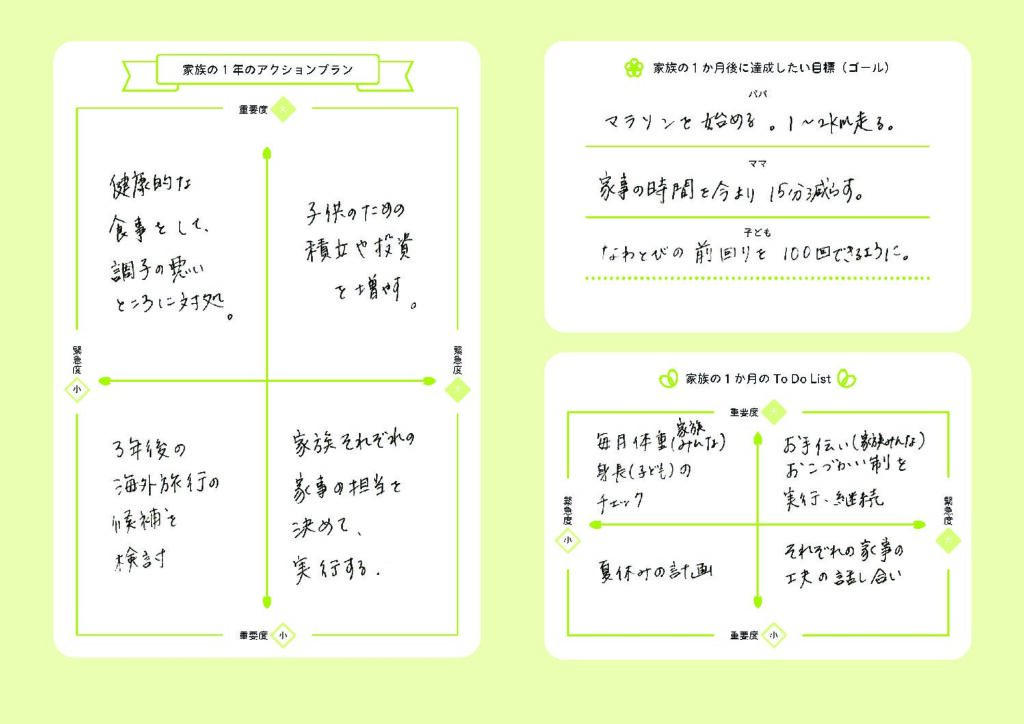 家族の1年のアクションプラン
重要度 大
健康的な
食事をして、
調子の悪い
ところに対処。
子供のための
積立や投資
を増やす。
緊急度 小
緊急度 大
3年後の
海外旅行の
候補を
検討
家族それぞれの
家事の担当を
決めて、
実行する.
重要度 小
家族の1か月後に達成したい目標（ゴール）
パパ
マラソンを始める。1～2km走る。
ママ
家事の時間を今より15分減らす。
子ども
なわとびの前回りを100回できるように。
家族の1か月のTo Do List
重要度 大
毎月体重(家族みんな)
身長(子ども)の
チェック
お手伝い(家族みんな)
おこづかい制を
実行、継続
緊急度 小
緊急度 大
夏休みの計画
それぞれの家事の
工夫の話し合い
重要度 小